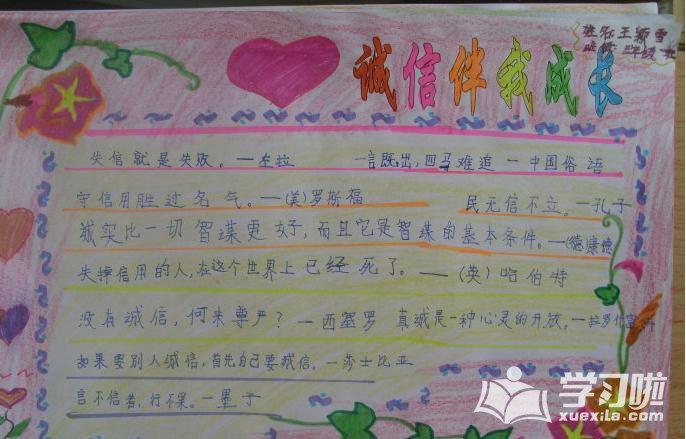 诚信伴我成长
姓名:王颖雪
班级:三年级
失信就是失败。—左拉 一言既出,四马难追 —中国俗语
守信用胜过名气。—(美)罗斯福 民无信不立。—孔子
诚实比一切智谋更好,而且它是智谋的基本条件。—(德康德
失掉信用的人,在这个世界上已经死了。—(英)哈伯特
没有诚信,何来尊严?—西塞罗 真诚是一种心灵的开放。—拉罗什富科
如果要别人诚信,首先自己要诚信。—莎士比亚
言不信者,行不果。—墨子
学习啦
xuexila.com